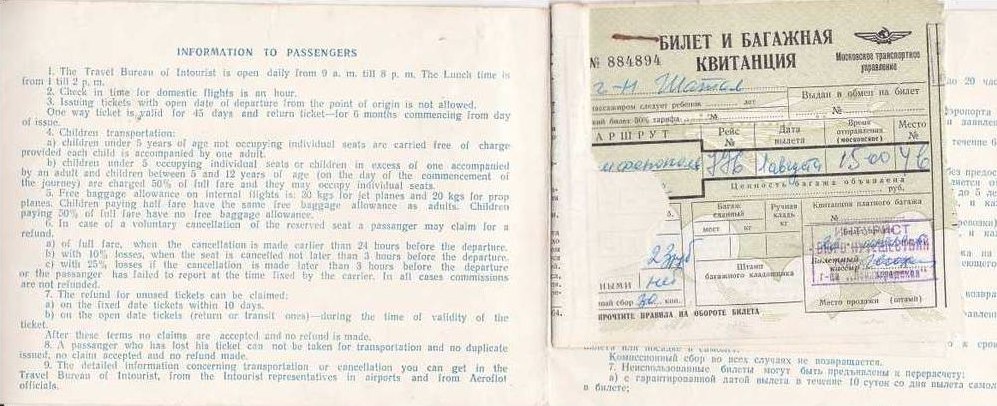 INFORMATION TO PASSENGERS
1. The Travel Bureau of Intourist is open daily from 9 a. m. till 8 p. m. The Lunch time is
from 1 till 2 p. m.
2. Check in time for domestic flights is an hour.
3. Issuing tickets with open date of departure from the point of origin is not allowed.
One way ticket is valid for 45 days and return ticket—for 6 months commencing from day
of issue.
4. Children transportation:
a) children under 5 years of age not occupying individual seats are carried free of charge
provided each child is accompanied by one adult.
b) children under 5 occupying individual seats or children in excess of one accompanied
by an adult and children between 5 and 12 years of age (on the day of the commencement of
the journey) are charged 50% of full fare and they may occupy individual seats.
5. Free baggage allowance on internal flights is: 30 kgs for jet planes and 20 kgs for prop
planes. Children paying half fare have the same free baggage allowance as adults. Children
paying 50% of full fare have no free baggage allowance.
6. In case of a voluntary cancellation of the reserved seat a passenger may claim for a
refund.
a) of full fare, when the cancellation is made earlier than 24 hours before the departure.
b) with 10% losses, when the seat is cancelled not later than 3 hours before the departure.
c) with 25% losses if the cancellation is made later than 3 hours before the departure
or the passenger has failed to report at the time fixed by the carrier. In all cases commissions
are not refunded.
7. The refund for unused tickets can be claimed:
a) on the fixed date tickets within 10 days.
b) on the open date tickets (return or transit ones)—during the time of validity of the
ticket.
After these terms no claims are accepted and no refund is made.
8. A passenger who has lost his ticket can not be taken for transportation and no duplicate
issued, no claim accepted and no refund made.
9. The detailed information concerning transportation or cancellation you can get in the
Travel Bureau of Intourist, from the Intourist representatives in airports and from Aeroflot
officials.
БИЛЕТ И БАГАЖНАЯ
КВИТАНЦИЯ
Московское транспортное
управление
№ 884894
г-н Шатал
пассажиром следует ребенок лет
Выдан в обмен на билет
ский билет 50% тарифа №
№
АРШРУТ
Рейс
№
Дата
вылета
Время
отправления
(московское)
Место
№
имферополь
1 августа
15 00
Ценность багажа объявлена
руб.
Багаж
сданный
Ручная
кладь
Квитанция платного багажа
№
мест кг кг
23 руб
Штамп
багажного кладовщика
НЫМИ нет
ный сбор 50 коп.
Билетный
кассир
Место продажи (штамп)
ПРОЧТИТЕ ПРАВИЛА НА ОБОРОТЕ БИЛЕТА
Комиссионный сбор во всех случаях не возвращается.
7. Неиспользованные билеты могут быть предъявлены к перерасчету:
а) с гарантированной датой вылета в течение 10 суток со дня вылета
в билете;